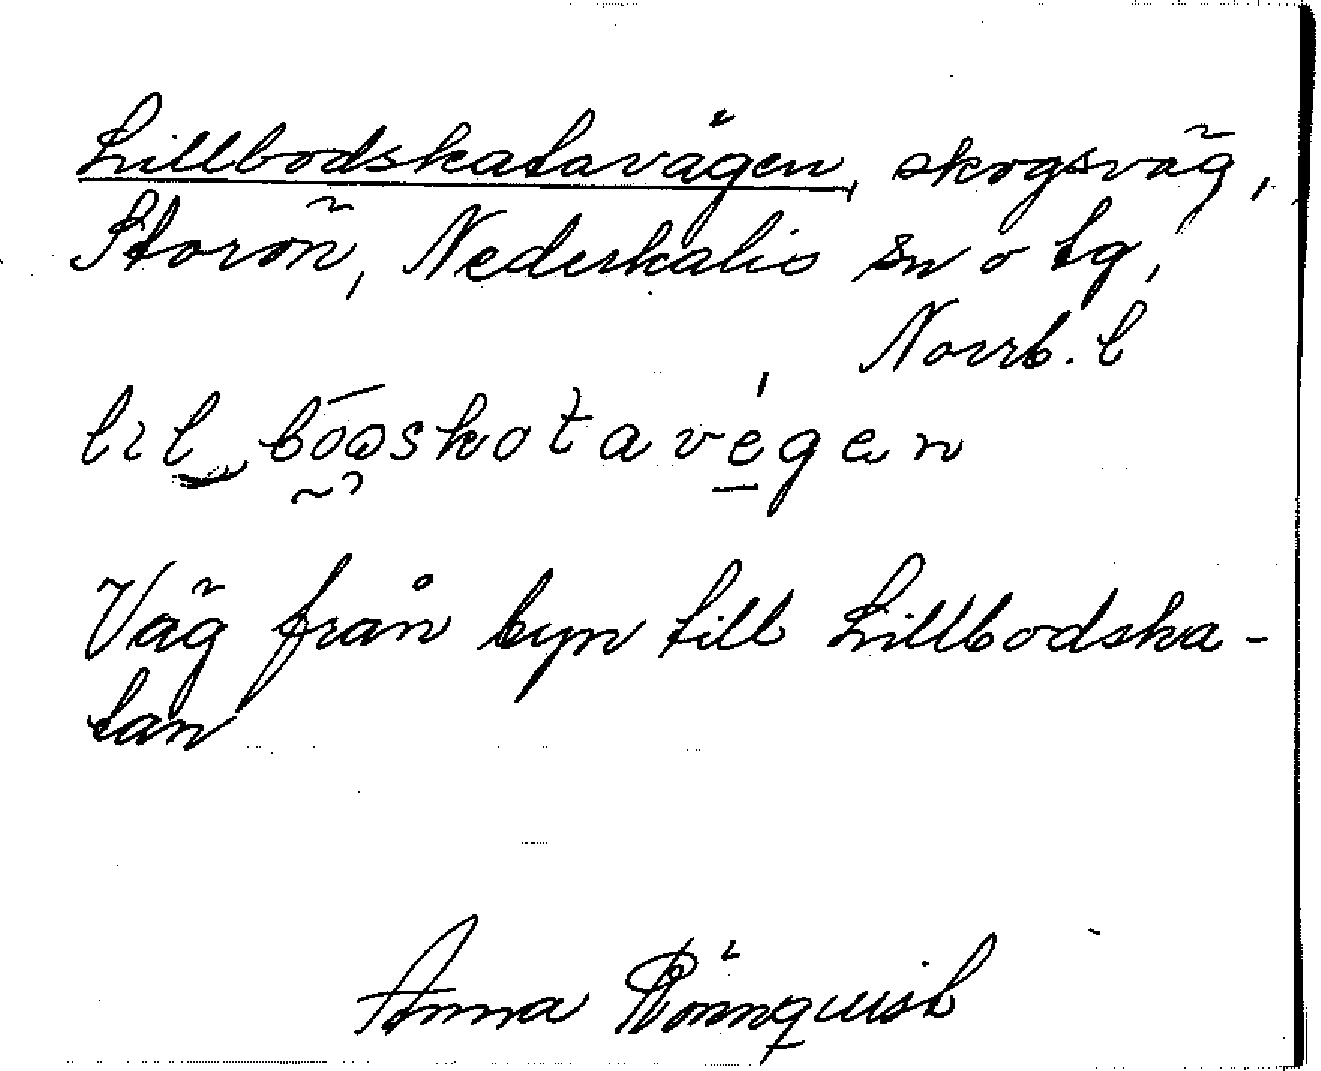 Lillbodskatavägen, skogsväg,
Storön, Nederkalix sn o tg,
Norrb. l
lil bōɷskotavégen
Väg från byn till Lillbodska-
tan
Anna Rönnquist